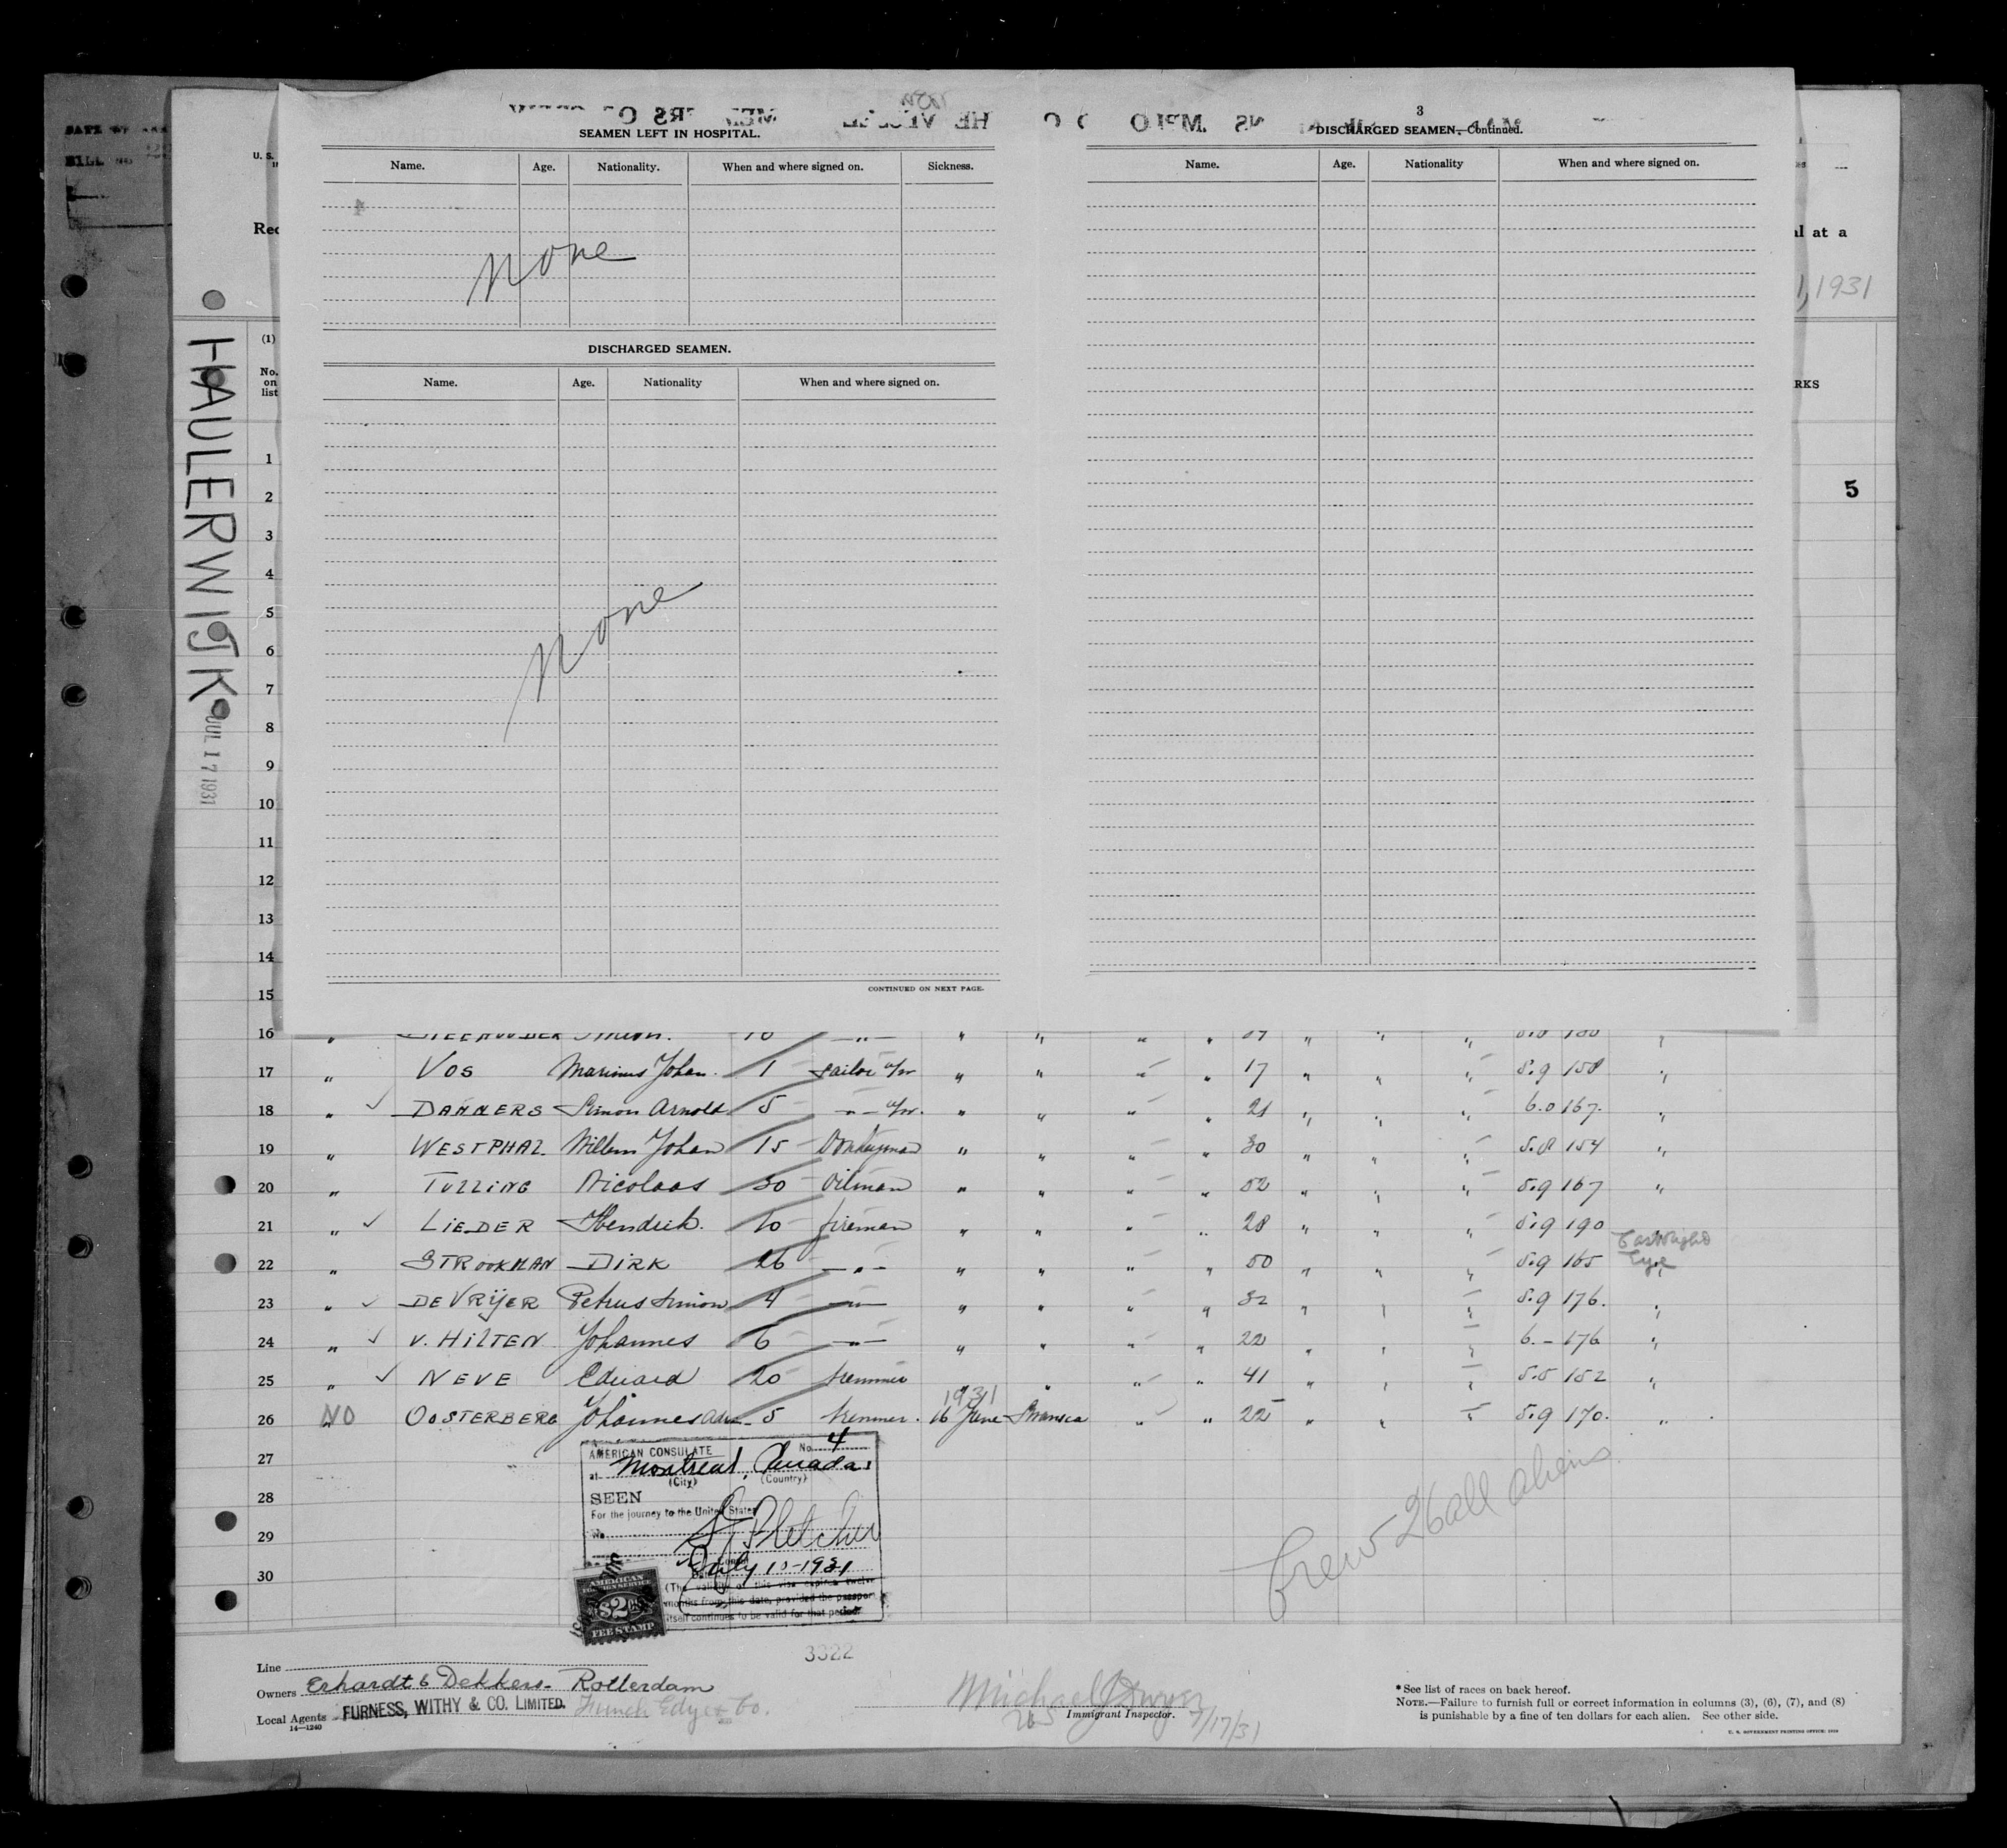 3
SEAMEN LEFT IN HOSPITAL.
Name. Age. Nationality. When and where signed on. Sickness.
None
DISCHARGED SEAMEN.
Name. Age. Nationality When and where signed on.
None
CONTINUED ON NEXT PAGE.
DISCHARGED SEAMEN.—Continued.
Name. Age. Nationality When and where signed on.
U. S.
Rec
al at a
1, 1931
(1)
No. on list
RKS
5
HAULERWIJK
JUL 17 1931
1
2
3
4
5
6
7
8
9
10
11
12
13
14
15
16
17 " Vos Marinus Johan. 1 sailor " " " " 17 " " " 5.9 158 "
18 " ✓ DAMMERS Simon Arnold 5 —"— " " " " 21 " " " 6.0 167. "
19 " WESTPHAL Willem Johan 15 Donkeyman " " " " 30 " " " 5.8 154 "
20 " TULLING Nicolaas 30 Oilman " " " " 52 " " " 5.9 167 "
21 " ✓ LIEDER Hendrik. 10 fireman " " " " 28 " " " 5.9 190
22 " STROOKMAN DIRK 26 —"— " " " " 50 " " " 5.9 165 Cast Right Eye
23 " ✓ DE VRIJER Petrus Simon 4 —"— " " " " 32 " " " 5.9 176. "
24 " ✓ V. HILTEN Johannes 6 —"— " " " " 22 " " " 6.— 176 "
25 " ✓ NEVE Eduard 20 trimmer " " " " 41 " " " 5.5 152 "
26 NO OOSTERBERG Johannes 5 trimmer. 1931 16 June Swansea " " 22 " " " 5.9 170. "
27
28
29
30
AMERICAN CONSULATE No. 4
at Montreal, Canada
(City) (Country)
SEEN
For the journey to the United States
No.
Fletcher
July 10-1931
(The validity of this visa expires twelve
months from this date, provided the passport
itself continues to be valid for that period.
AMERICAN
FOREIGN SERVICE
$2
FEE STAMP
Crew 26 all aliens
3322
Line
Owners Erhardt & Dekkers - Rotterdam
Local Agents FURNESS, WITHY & CO. LIMITED. Funch Edye & Co.
14—1240
Michael J Dwyer
Immigrant Inspector. 7/17/31
* See list of races on back hereof.
NOTE.—Failure to furnish full or correct information in columns (3), (6), (7), and (8)
is punishable by a fine of ten dollars for each alien. See other side.
U. S. GOVERNMENT PRINTING OFFICE